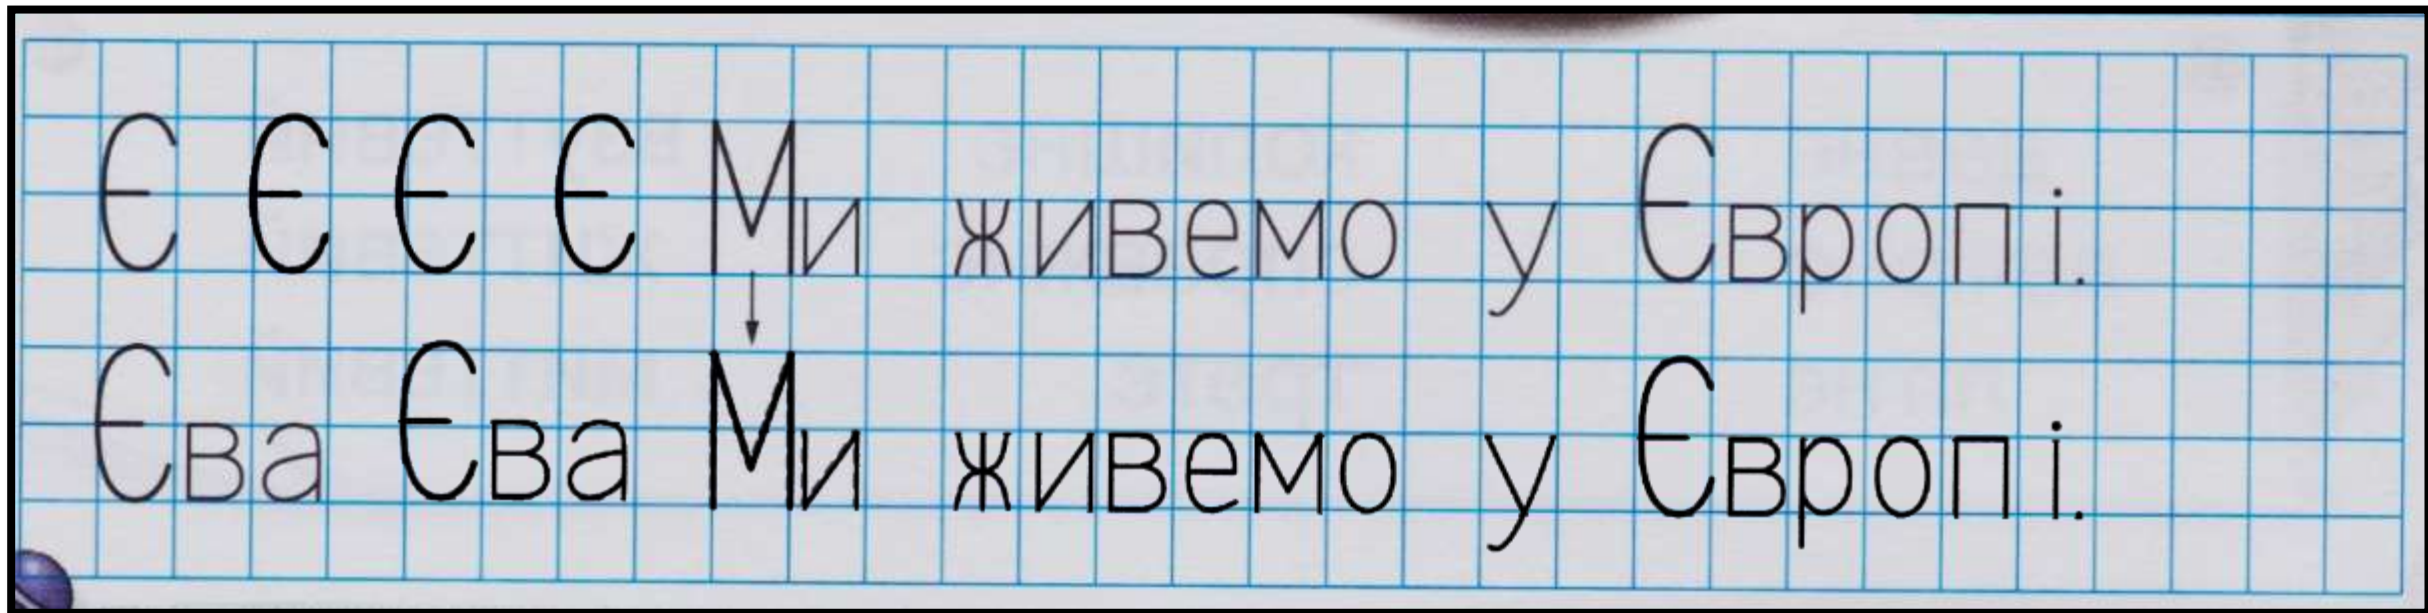 Є Є Є Є Ми живемо у Європі.
Єва Єва Ми живемо у Європі.